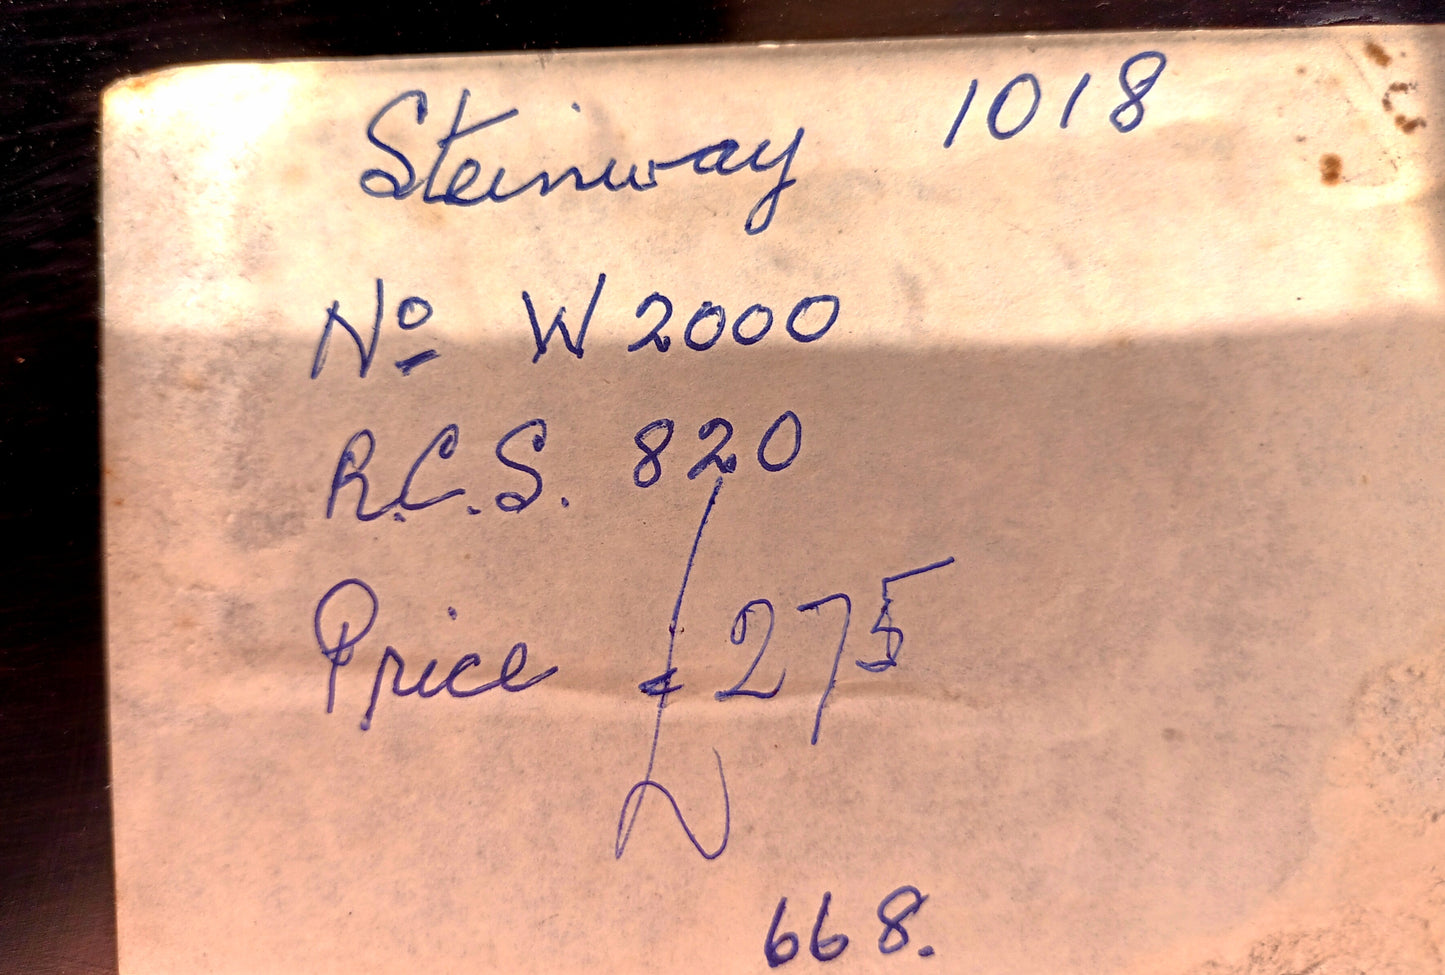 Steinway 1018
Nº W2000
R.C.S. 820
Price £275
668.